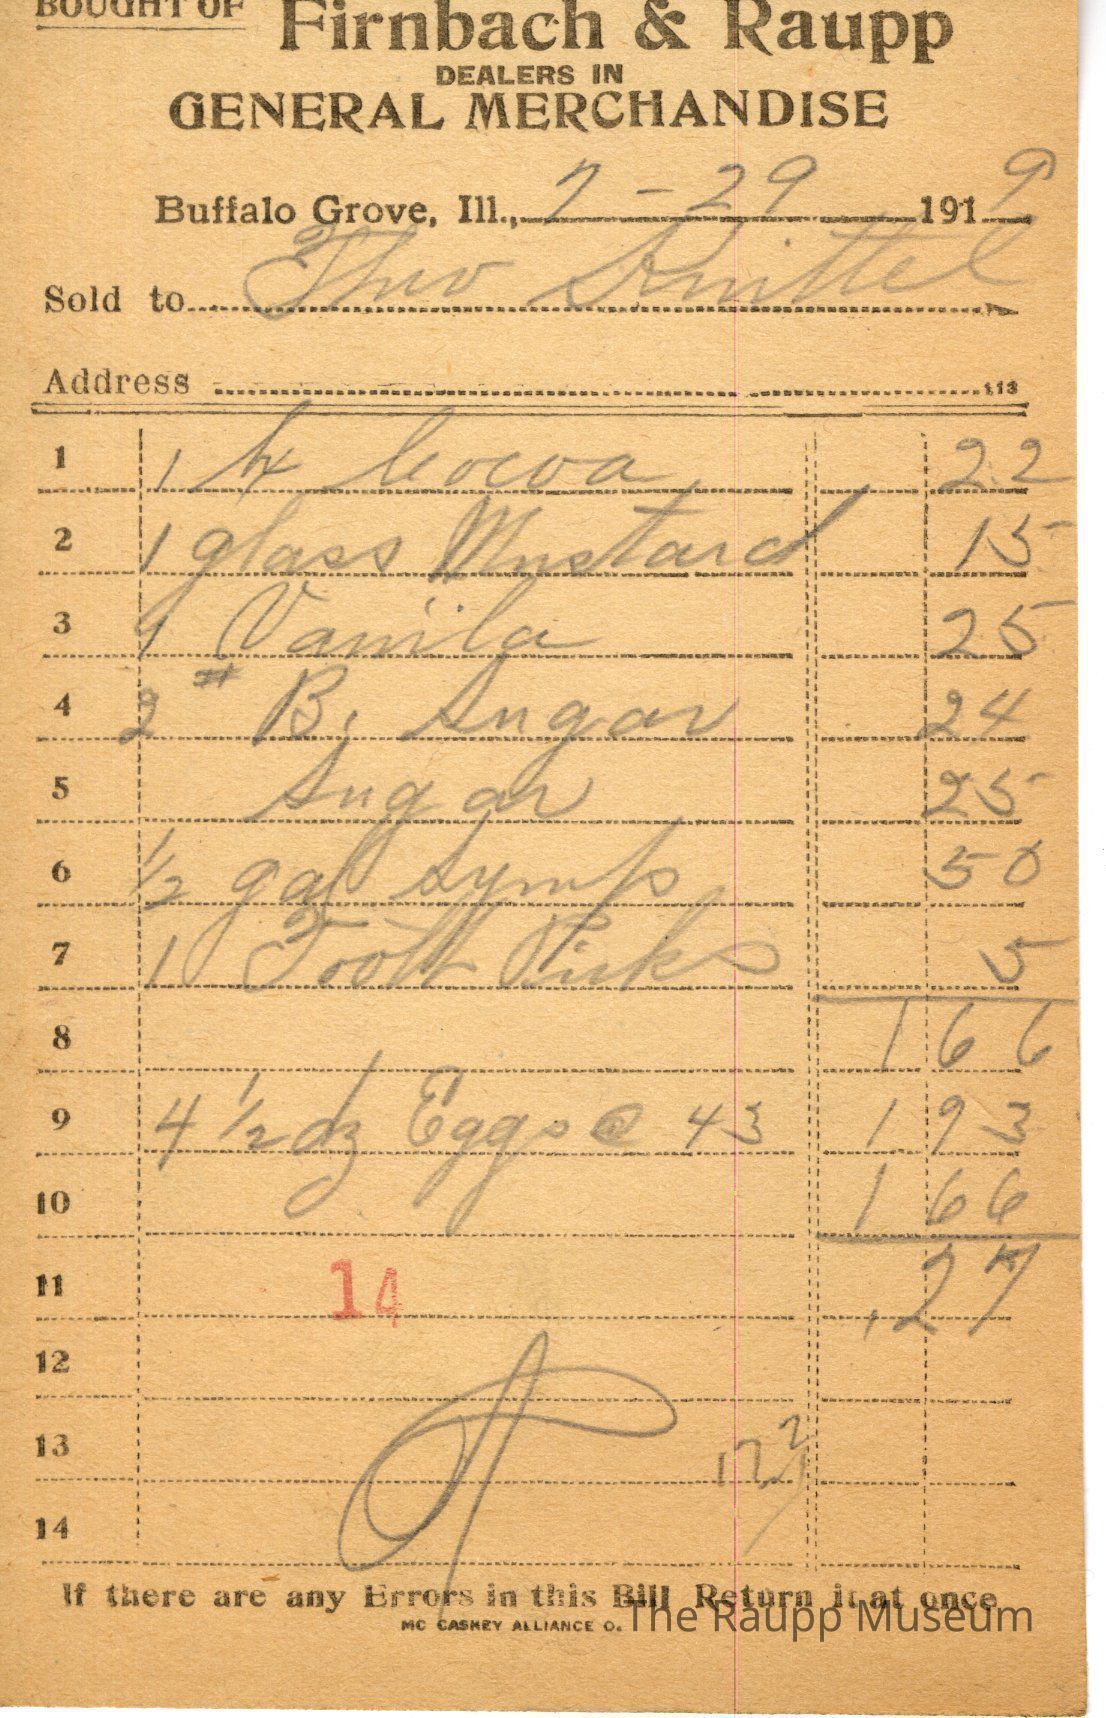 BOUGHT OF Firnbach & Raupp
DEALERS IN
GENERAL MERCHANDISE
Buffalo Grove, Ill., 7-29 1919
Sold to Theo Knittel
Address 113
1 1 Cocoa 22
2 1 glass Mustard 15
3 1 Vanila 25
4 2 # B. Sugar 24
5 Sugar 25
6 1/2 gal Syrup 50
7 1 Tooth Picks 5
8 1 66
9 4 1/2 dz Eggs @ 43 1 93
10 1 66
11 14 .27
12
13
14
If there are any Errors in this Bill Return it at once
MC CASKEY ALLIANCE O.
The Raupp Museum